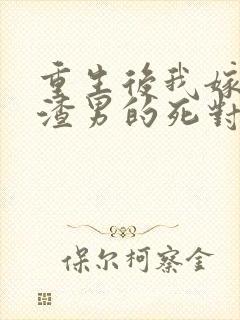 重生後我嫁
渣男的死對
保尔柯察金